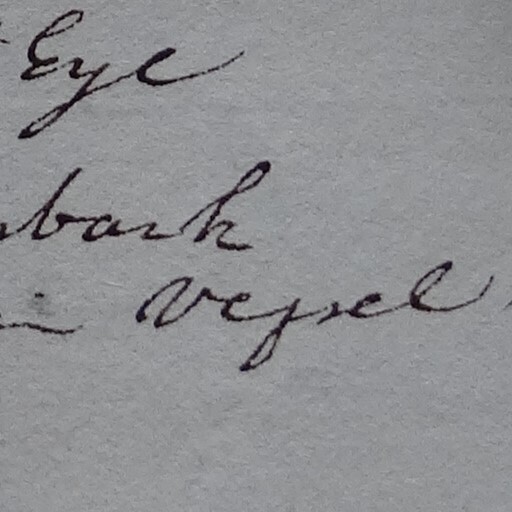 Eye
bark
vessel